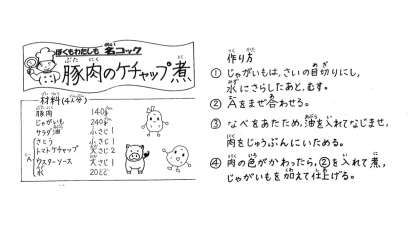 ぼくもわたしも 名コック
豚肉のケチャップ煮
材料(4人分)
豚肉 140g
じゃがいも 240g
サラダ油 小さじ1
さとう 小さじ1
トマトケチャップ 大さじ2
ウスターソース 大さじ1
水 20cc
A
作り方
① じゃがいもは、さいの目切りにし、
水にさらしたあと、むす。
② Aをまぜ合わせる。
③ なべをあたため、油を入れてなじませ、
肉をじゅうぶんにいためる。
④ 肉の色がかわったら、②を入れて煮、
じゃがいもを加えて仕上げる。